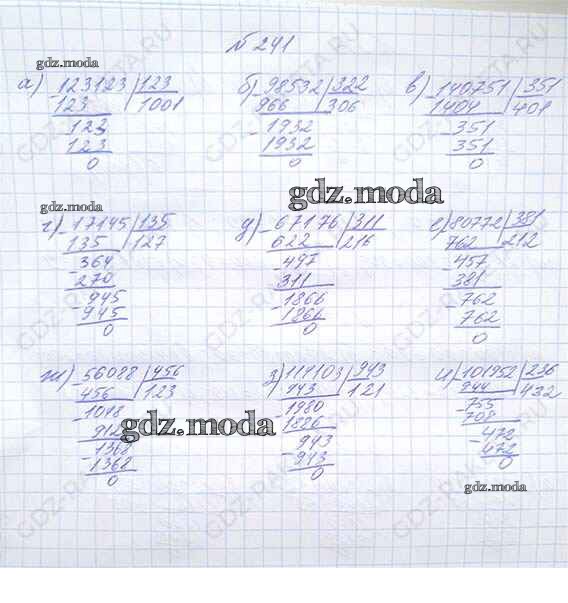 № 241
gdz.moda
а) 123123 | 123
123 1001
- 123
123
0
б) - 98532 | 322
966 306
- 1932
1932
0
в) - 140751 | 351
1404 401
- 351
351
0
gdz.moda
gdz.moda
г) - 17145 | 135
135 127
- 364
270
- 945
945
0
д) - 67176 | 311
622 216
- 497
311
- 1866
1866
0
е) - 80772 | 381
762 212
- 457
381
- 762
762
0
ж) - 56088 | 456
456 123
- 1048
912
- 1368
1368
0
з) 114103 | 943
943 121
- 1980
1886
- 943
943
0
и) - 101952 | 236
944 432
- 755
708
- 472
472
0
gdz.moda
gdz.moda
GDZ-RAKETA.RU